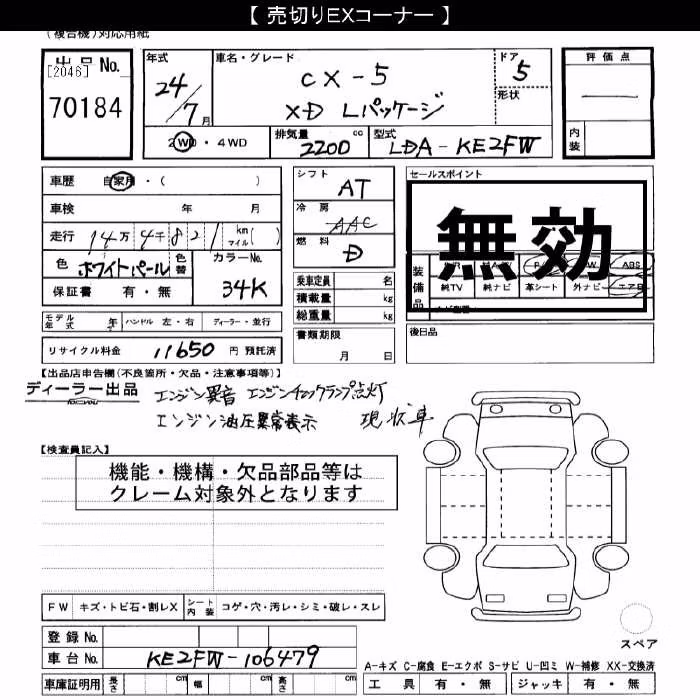 【 売切りEXコーナー 】
(複合機)対応用紙
出品 No.
[2046]
70184
年式
24/7月
車名・グレード
CX-5
XD Lパッケージ
ドア
5
形状
評価点
内装
2WD・4WD
排気量 2200 cc
型式 LDA-KE2FW
車歴 自家用・( )
車検 年 月
走行 14万4千821 km マイル( )
色 ホワイトパール 色替
カラーNo. 34K
保証書 有・無
シフト AT
冷房 AAC
燃料 D
セールスポイント
無効
装備品
ABS
純TV 純ナビ 革シート 外ナビ エアB
乗車定員 名
積載量 kg
総重量 kg
書類期限
月 日
後日品
モデル年式 年 ハンドル 左・右 ディーラー・並行
リサイクル料金 11650 円 預託済
【出品店申告欄(不良箇所・欠品・注意事項等)】
ディーラー出品
エンジン異音 エンジンチェックランプ点灯
エンジン油圧異常表示 現状車
【検査員記入】
機能・機構・欠品部品等は
クレーム対象外となります
FW キズ・トビ石・割レX シート内装 コゲ・穴・汚レ・シミ・破レ・スレ
登録 No.
車台 No. KE2FW-106479
車庫証明用 長さ cm 幅 cm 高さ cm
スペア
A-キズ C-腐食 E-エクボ S-サビ U-凹ミ W-補修 XX-交換済
工具 有・無 ジャッキ 有・無